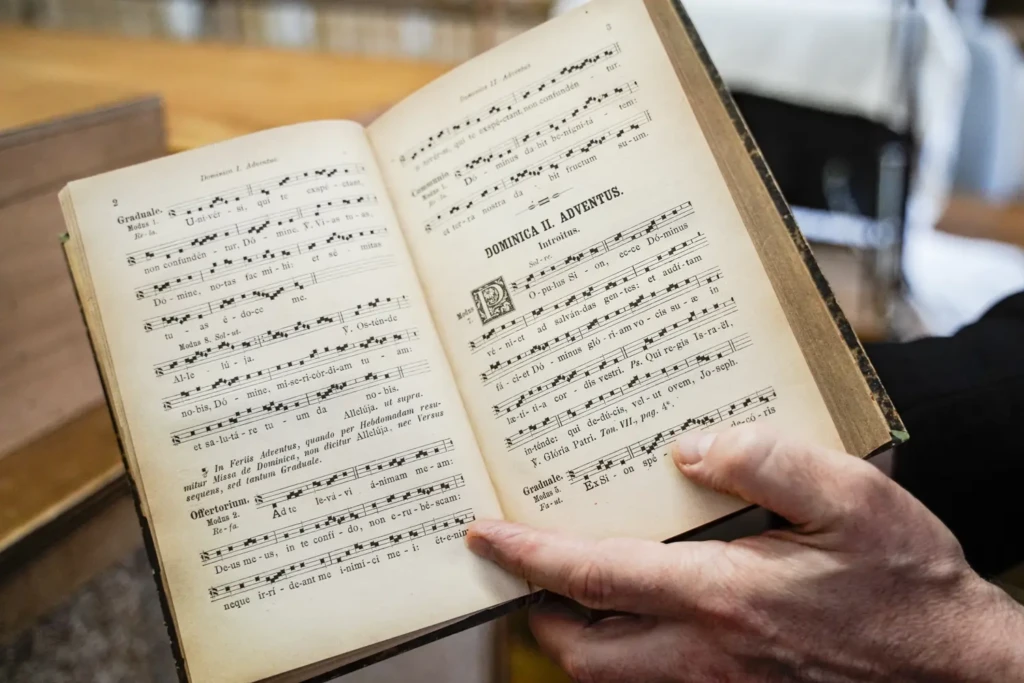 2
Dominica I. Adventus.
Graduale.
Modus 1.
Re-la.
U-ni-vér - si, qui te exspé - ctant,
non confundén - tur, Dó - mine. ℣. Vi-as tu-as,
Dó-mine, no-tas fac mi-hi: et sé - mitas
tu - as é-do-ce me.
Modus 8. Sol-ut.
Al-le - lú-ja. ℣. Os-tén-de
no-bis, Dó - mine, mi-se-ri-cór-di-am tu - am:
et sa-lu-tá-re tu - um da no-bis.
Allelúja, ut supra.
¶ In Feriis Adventus, quando per Hebdomadam resu-
mitur Missa de Dominica, non dicitur Allelúja, nec Versus
sequens, sed tantum Graduale.
Offertorium.
Modus 2.
Re-fa.
Ad te le-vá-vi á-nimam me-am:
De-us me-us, in te confí-do, non e-ru-bé-scam:
neque ir-rí-de-ant me i-ni-mí-ci me-i: ét-e-nim
3
Dominica II. Adventus
u-nivér-si, qui te exspé-ctant, non confundén - tur.
Communio.
Modus 1.
Dó - minus da-bit be-nigni-tá - tem:
et ter-ra nostra da - bit fructum su-um.
DOMINICA II. ADVENTUS.
Introitus.
Sol-re.
Modus
7.
P
O-pu-lus Si-on, ec-ce Dó-minus
vé-ni-et ad salván-das gen-tes: et audí-tam
fá-ci-et Dó-minus gló-ri-am vo-cis su-æ in
læ-tí-ti-a cor-dis vestri. Ps. Qui re-gis Is-ra-ël,
in-ténde: qui de-dú-cis, vel-ut ovem, Jo-seph.
℣. Glória Patri. Ton. VII., pag. 4*.
Graduale.
Modus 5.
Fa-ut.
Ex Si-on spé - de-có-ris